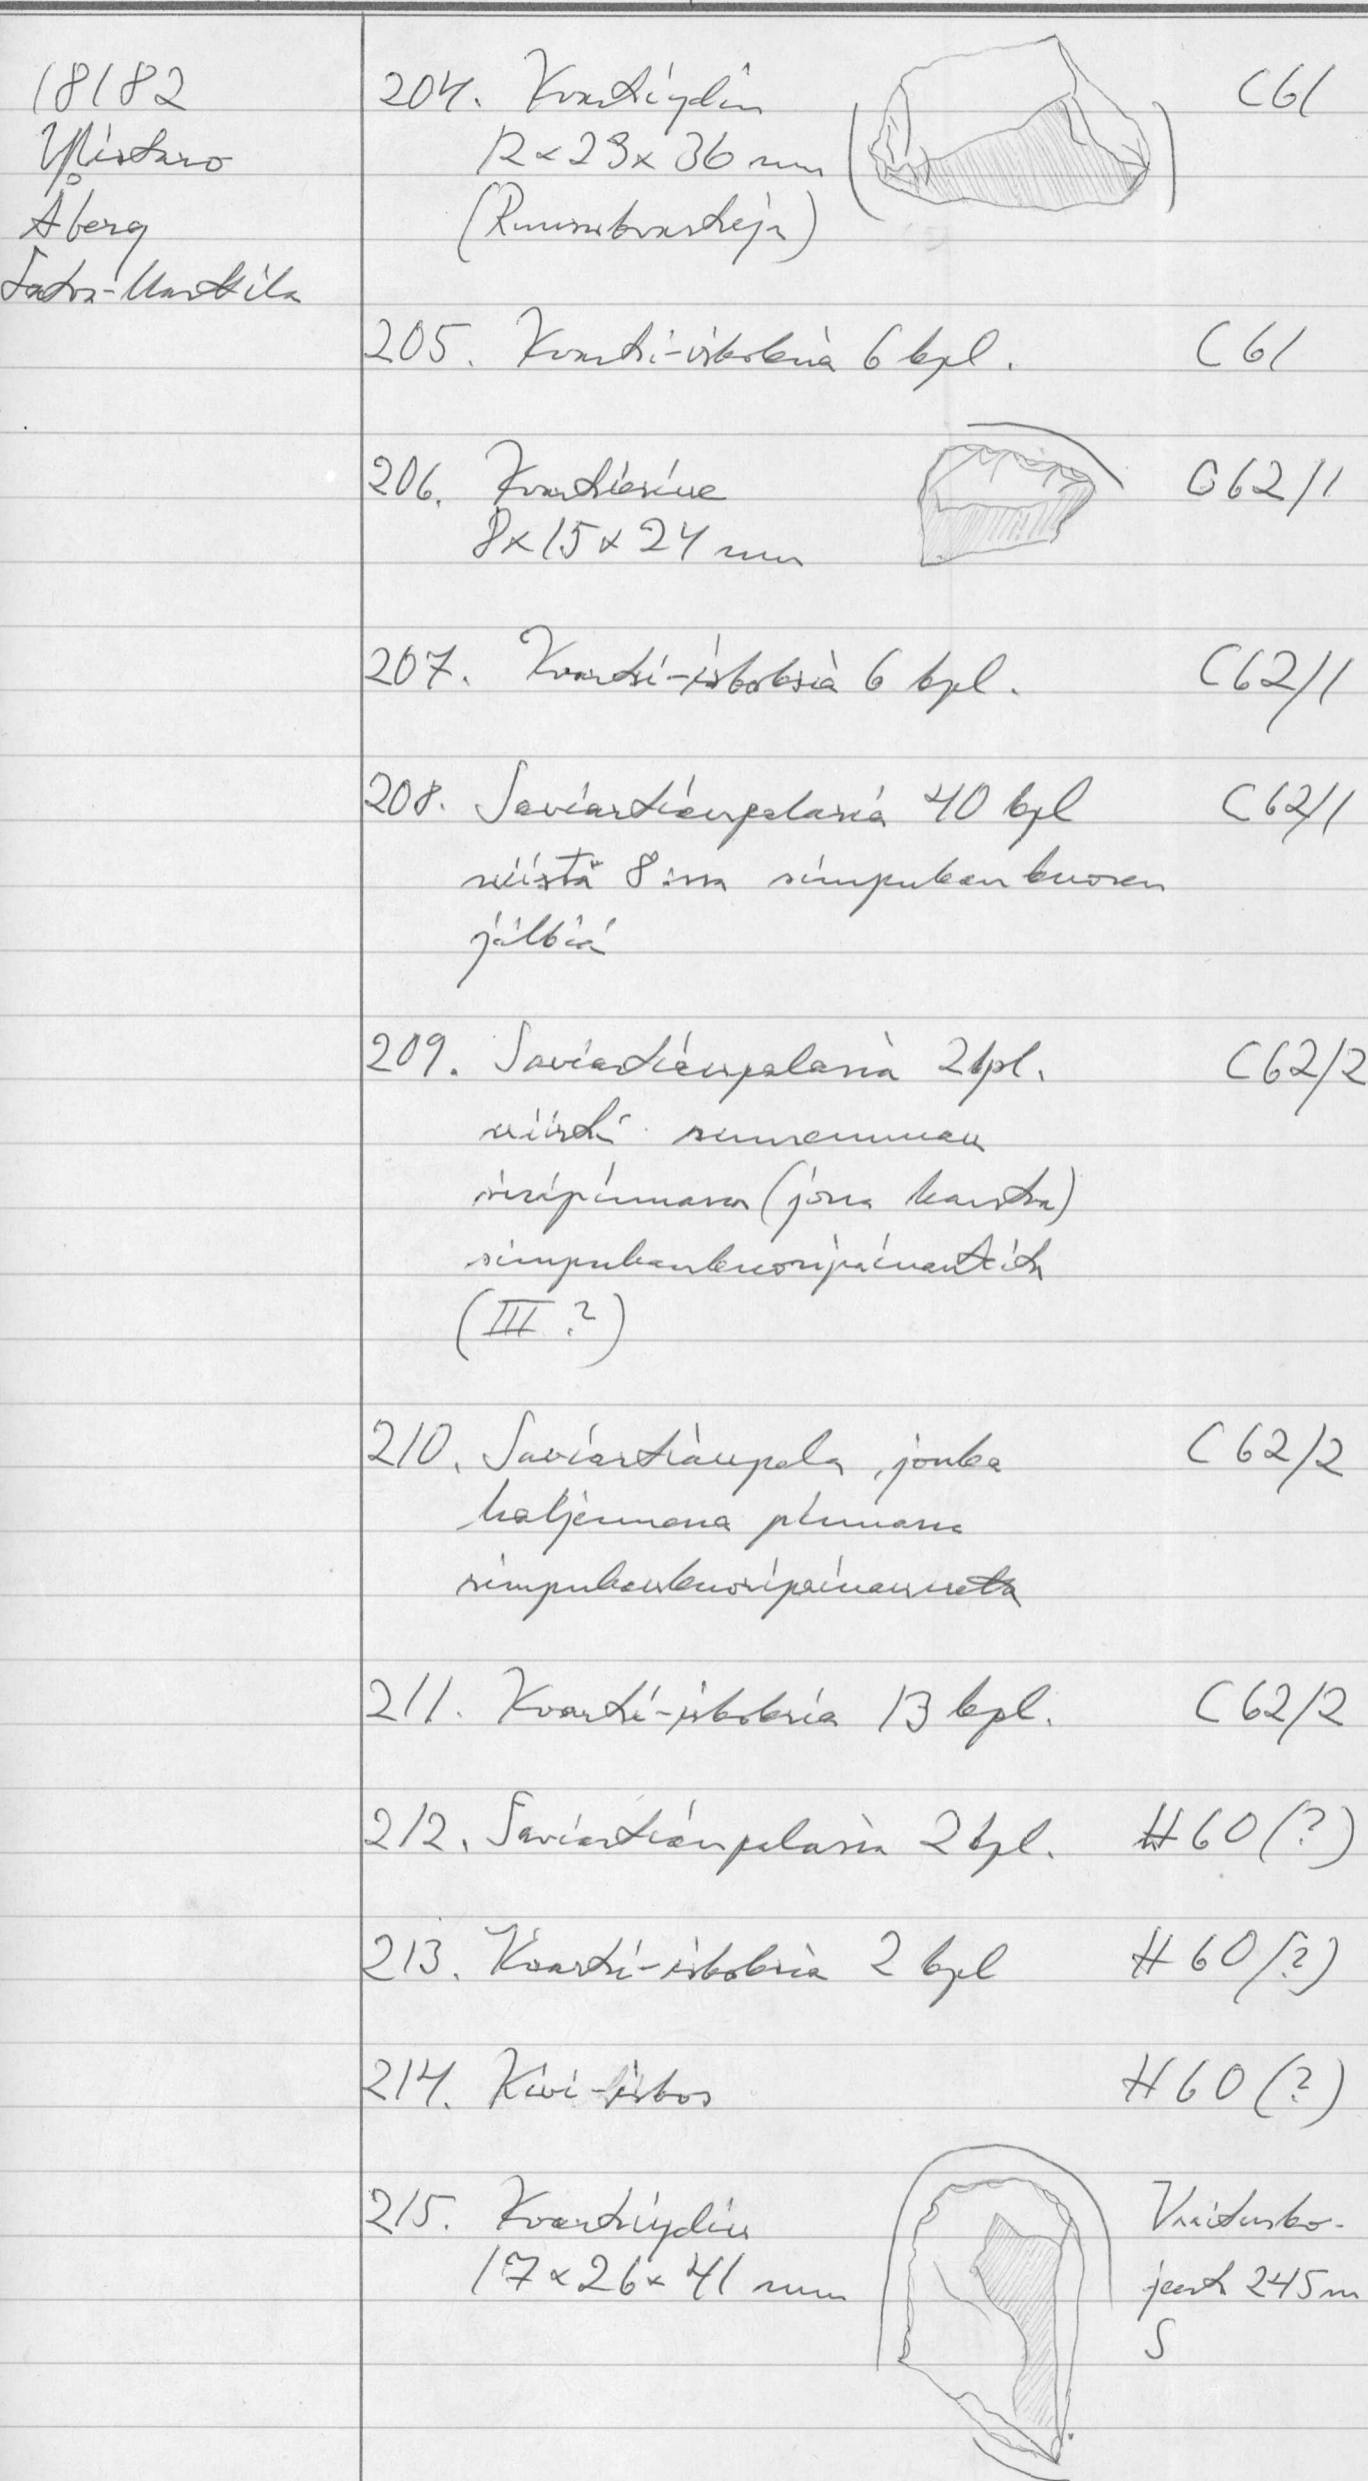 18182
Ylistaro
Åberg
Satru-Marttila
204. Kvartsiydin
12 x 23 x 36 mm
(Ruusukvartsija)
C61
205. Kvartsi-iskoksia 6 kpl. C61
206. Kvartsiesine C62/1
8x15x24 mm
207. Kvartsi-iskoksia 6 kpl. C62/1
208. Saviastianpalasia 40 kpl C62/1
niistä 8:ssa simpukankuoren
jälkiä
209. Saviastianpalasia 2 kpl. C62/2
niistä suuremman
sisäpinnassa (jossa karsta)
simpukankuoripainanteita
(III ?)
210. Saviastianpala, jonka C62/2
haljenneessa pinnassa
simpukankuoripainanneta
211. Kvartsi-iskoksia 13 kpl. C62/2
212. Saviastianpalasia 2 kpl. H60(?)
213. Kvartsi-iskoksia 2 kpl H60(?)
214. Kivi-iskos H60(?)
215. Kvartsiydin
17x26x41 mm
245 m
S